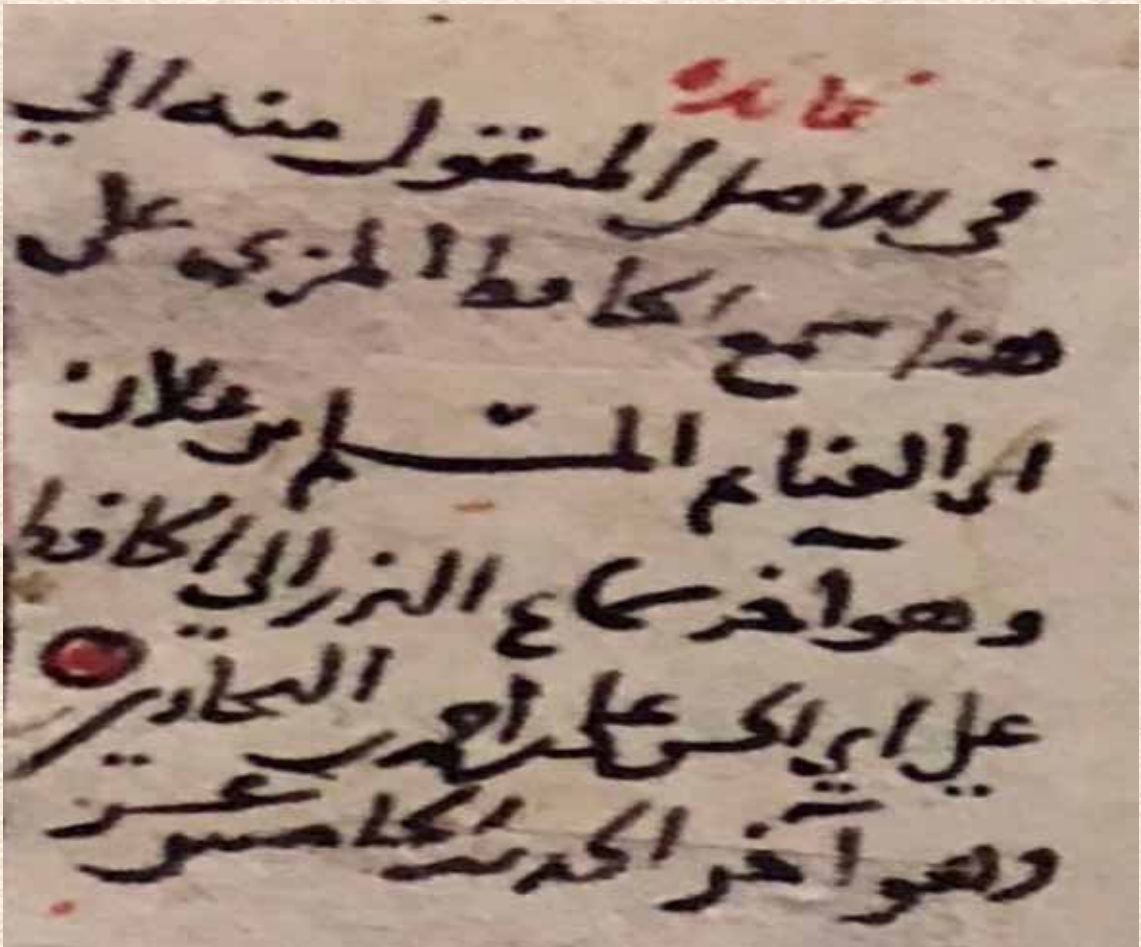 فائدة
في الاصل المنقول منه الي
هنا سمع الحافظ المزي على
ابي الغنايم المسلم بن علان
وهو آخر سماع البرزالي الحافظ
علي ابي الحسن علي بن احمد بن البخاري
وهو آخر الجزء الخامس عشر